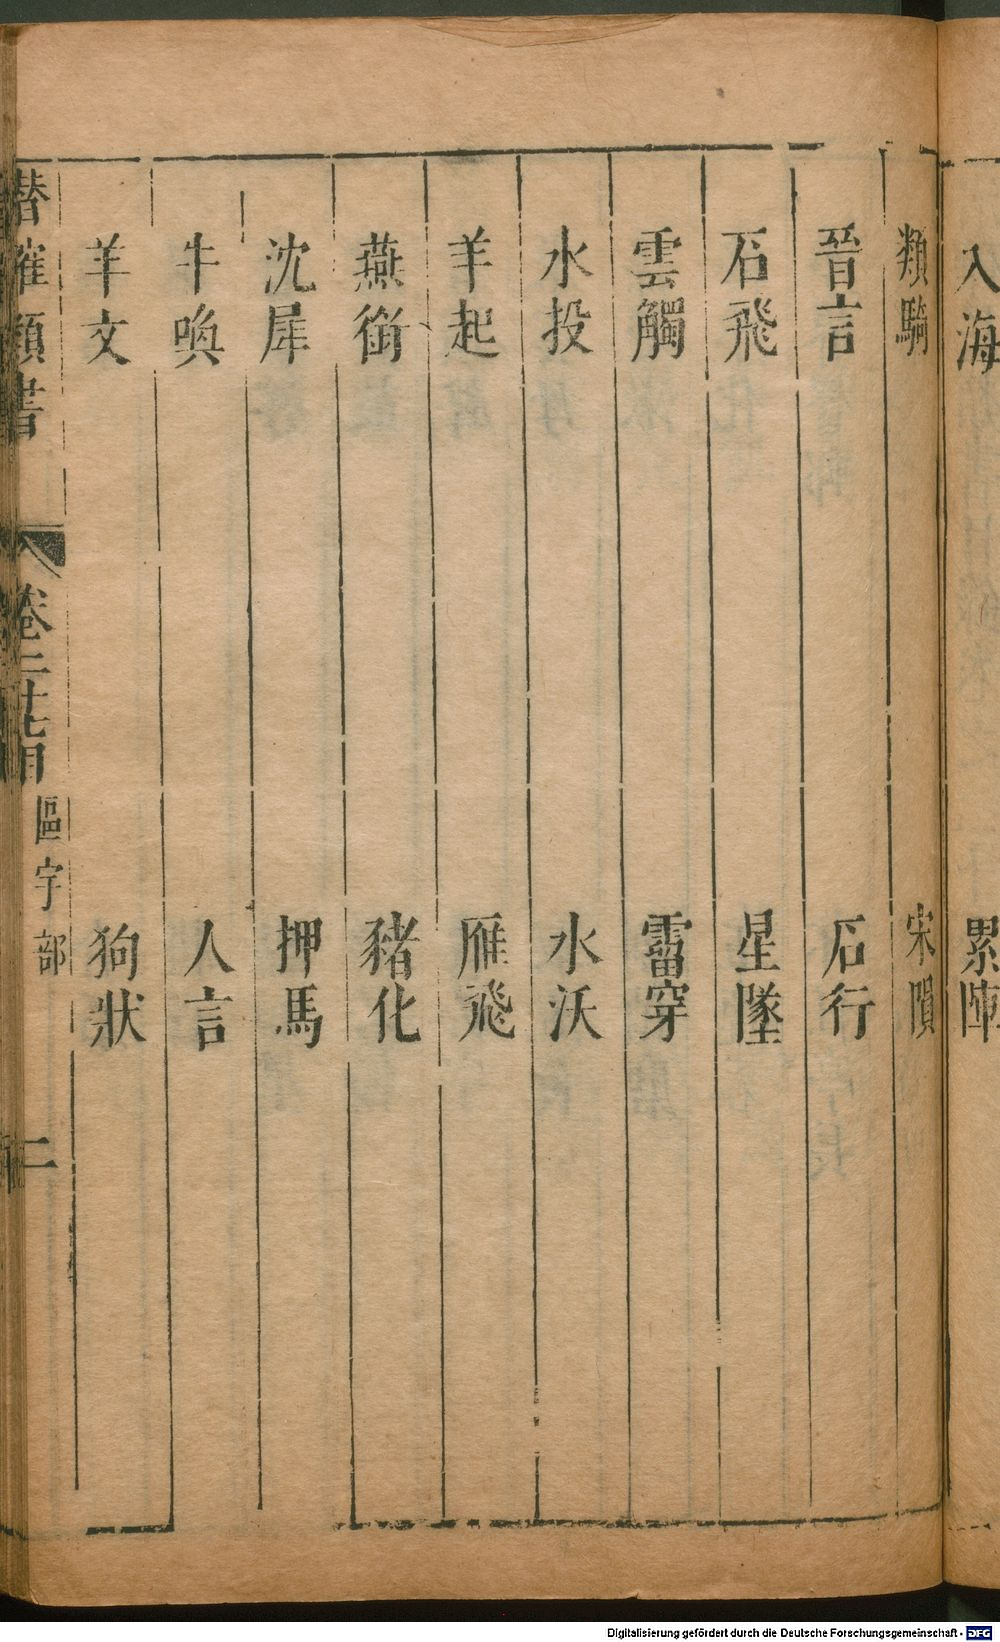 入海 累陣
類騎 宋隕
晉言 石行
石飛 星墜
雲觸 雷穿
水投 水沃
羊起 雁飛
燕銜 豬化
沈犀 押馬
牛喚 人言
羊文 狗狀
潛確類書 卷二十七目 區宇部 二
Digitalisierung gefördert durch die Deutsche Forschungsgemeinschaft - DFG